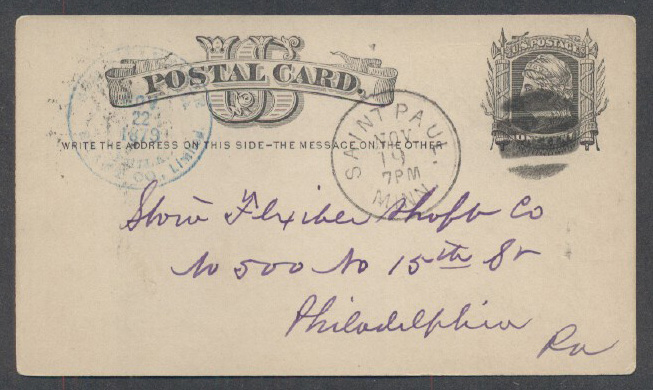 U.S. POSTAGE
POSTAL CARD.
US
WRITE THE ADDRESS ON THIS SIDE-THE MESSAGE ON THE OTHER
22
1879
CO., Limited
SAINT PAUL
NOV
19
7PM
MINN.
Stow Flxiber Shaft Co
No 500 No 15th St
Philadelphia
Pa